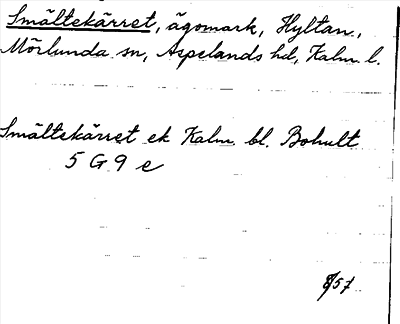 Smältekärret, ägomark, Hyltan,
Mörlunda sn, Aspelands hd, Kalm. l.
Smältekärret ek Kalm. bl. Bohult
5 G 9 e